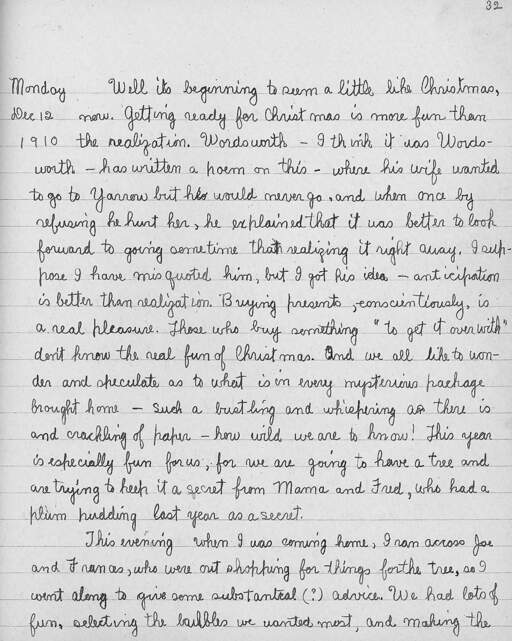 32
Monday Well its beginning to seem a little like Christmas,
Dec 12 now. Getting ready for Christmas is more fun than
1910 the realization. Wordsworth – I think it was Words-
worth – has written a poem on this – where his wife wanted
to go to Yarrow but he would never go, and when once by
refusing he hurt her, he explained that it was better to look
forward to going sometime than realizing it right away. I sup-
pose I have misquoted him, but I got his idea – anticipation
is better than realization. Buying presents, conscientiously, is
a real pleasure. Those who buy something "to get it over with"
don't know the real fun of Christmas. And we all like to won-
der and speculate as to what is in every mysterious package
brought home – such a bustling and whispering as there is
and crackling of paper – how wild we are to know! This year
is especially fun for us, for we are going to have a tree and
are trying to keep it a secret from Mama and Fred, who had a
plum pudding last year as a secret.
This evening when I was coming home, I ran across Joe
and Frances, who were out shopping for things for the tree, so I
went along to give some substantial (?) advice. We had lots of
fun, selecting the baubles we wanted most, and making the